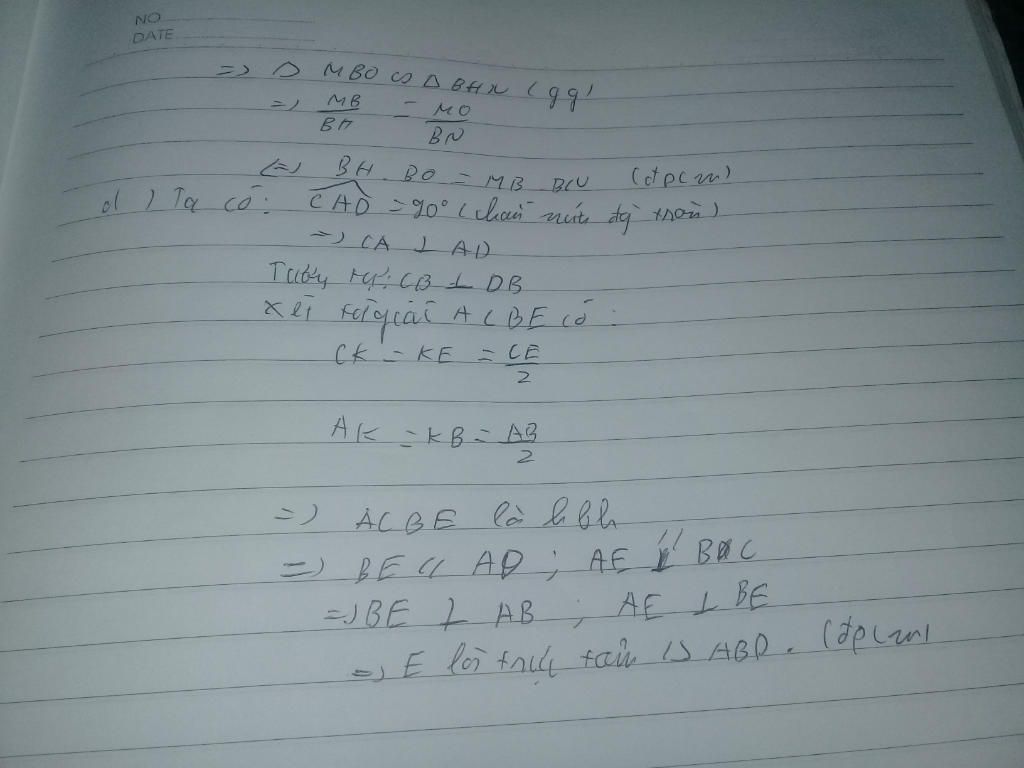 NO
DATE
=> Δ MBO ∽ Δ BHN (gg)
=> MB/BH = MO/BN
<=> BH . BO = MB . BN (đpcm)
d ) Ta có : CAD = 90° (chắn nửa đg tròn)
=> CA ⊥ AD
Tương tự: CB ⊥ DB
Xét tứ giác ACBE có :
CK = KE = CE/2
AK = KB = AB/2
=> ACBE là hbh
=> BE // AD ; AE // BC
=> BE ⊥ AB ; AE ⊥ BE
=> E là trực tâm Δ ABD . (đpcm)